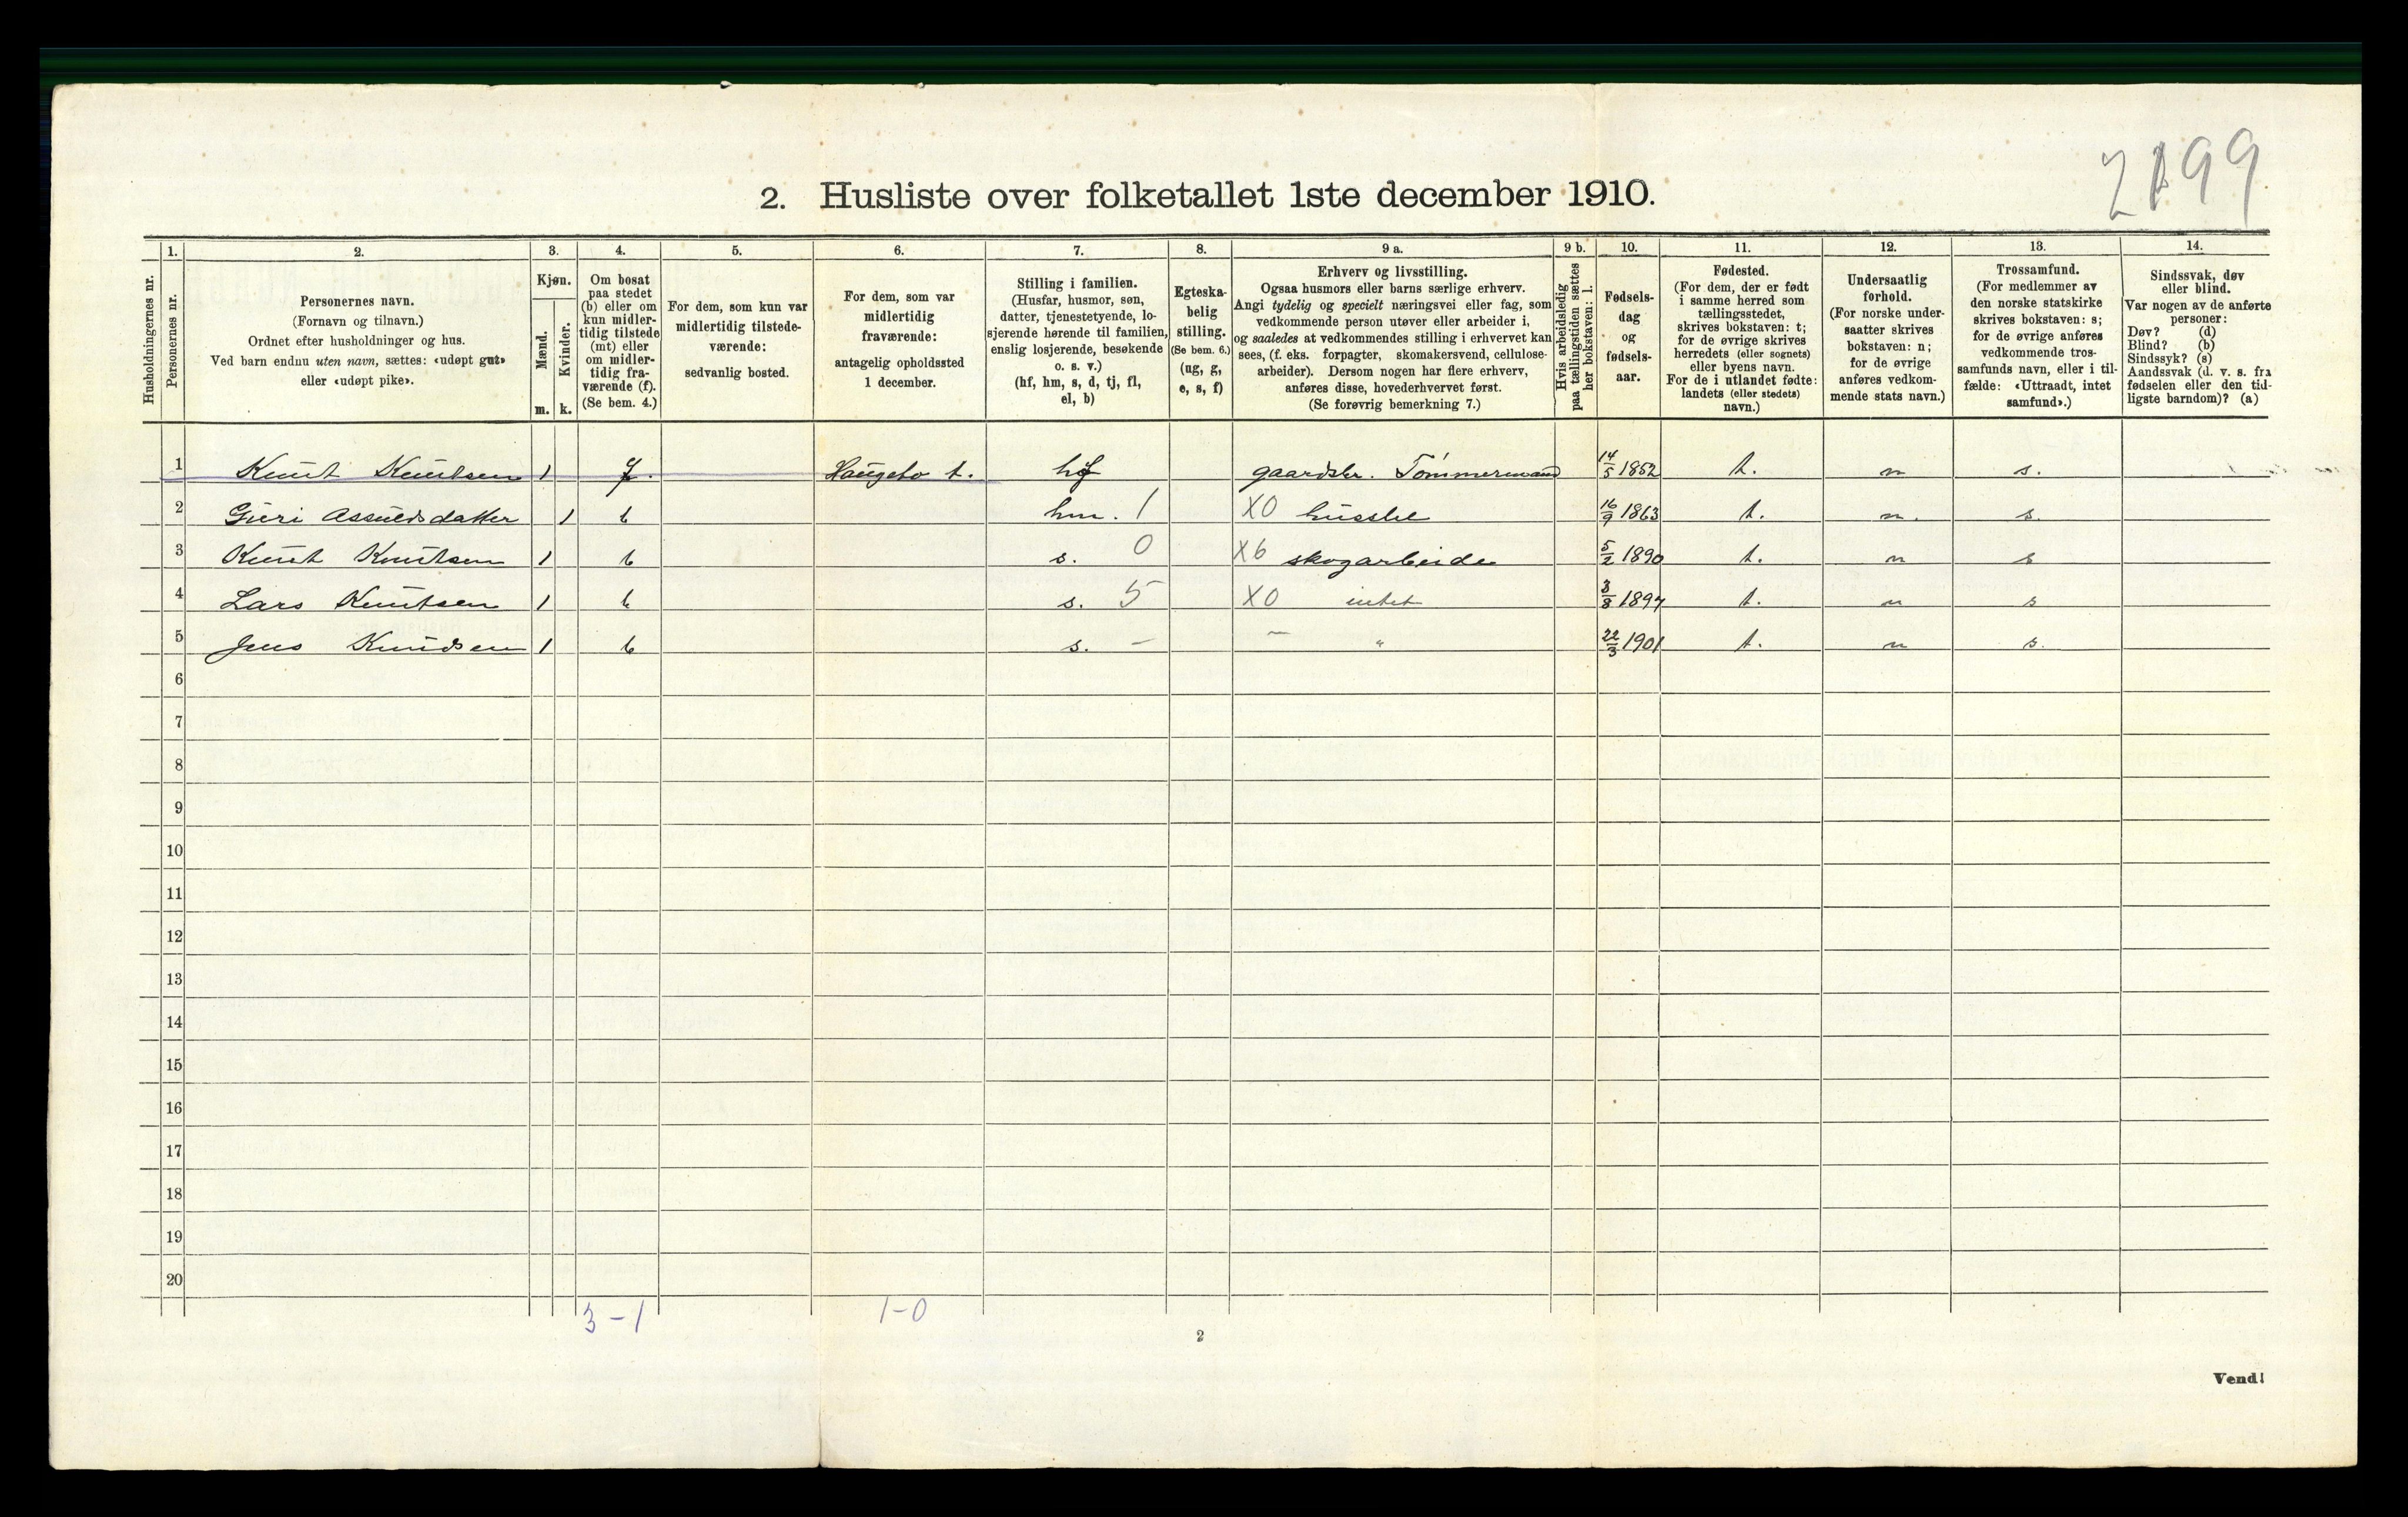 2199
2. Husliste over folketallet 1ste december 1910.
Husholdningernes nr.
1.
Personernes nr.
2.
Personernes navn.
(Fornavn og tilnavn.)
Ordnet efter husholdninger og hus.
Ved barn endnu uten navn, sættes: «udøpt gut»
eller «udøpt pike».
3.
Kjøn.
Mænd.
m.
Kvinder.
k.
4.
Om bosat
paa stedet
(b) eller om
kun midler-
tidig tilstede
(mt) eller
om midler-
tidig fra-
værende (f).
(Se bem. 4.)
5.
For dem, som kun var
midlertidig tilstede-
værende:
sedvanlig bosted.
6.
For dem, som var
midlertidig
fraværende:
antagelig opholdssted
1 december.
7.
Stilling i familien.
(Husfar, husmor, søn,
datter, tjenestetyende, lo-
sjerende hørende til familien,
enslig losjerende, besøkende
o. s. v.)
(hf, hm, s, d, tj, fl,
el, b)
8.
Egteska-
belig
stilling.
(Se bem. 6.)
(ug, g,
e, s, f)
9 a.
Erhverv og livsstilling.
Ogsaa husmors eller barns særlige erhverv.
Angi tydelig og specielt næringsvei eller fag, som
vedkommende person utøver eller arbeider i,
og saaledes at vedkommendes stilling i erhvervet kan
sees, (f. eks. forpagter, skomakersvend, cellulose-
arbeider). Dersom nogen har flere erhverv,
anføres disse, hovederhvervet først.
(Se forøvrig bemerkning 7.)
9 b.
Hvis arbeidsledig
paa tællingstiden sættes
her bokstaven: l.
10.
Fødsels-
dag
og
fødsels-
aar.
11.
Fødested.
(For dem, der er født
i samme herred som
tællingsstedet,
skrives bokstaven: t;
for de øvrige skrives
herredets (eller sognets)
eller byens navn.
For de i utlandet fødte:
landets (eller stedets)
navn.)
12.
Undersaatlig
forhold.
(For norske under-
saatter skrives
bokstaven: n;
for de øvrige
anføres vedkom-
mende stats navn.)
13.
Trossamfund.
(For medlemmer av
den norske statskirke
skrives bokstaven: s;
for de øvrige anføres
vedkommende tros-
samfunds navn, eller i til-
fælde: «Uttraadt, intet
samfund».)
14.
Sindssvak, døv
eller blind.
Var nogen av de anførte
personer:
Døv? (d)
Blind? (b)
Sindssyk? (s)
Aandssvak (d. v. s. fra
fødselen eller den tid-
ligste barndom)? (a)
1 Knut Knutsen 1 f. Haugebo t. hf gaardsbr. Tømmermand 14/5 1852 t. n s.
2 Guri Assuldsdatter 1 b hm. 1 X0 husstel 16/9 1863 t. n. s.
3 Knut Knutsen 1 b s. 0 X6 skogarbeide 5/2 1890 t. n s
4 Lars Knutsen 1 b s. 5 X0 intet 3/8 1897 t. n s
5 Jens Knudsen 1 b s. - - " 22/3 1901 t. n s.
6
7
8
9
10
11
12
13
14
15
16
17
18
19
20
3-1 1-0
2
Vend!